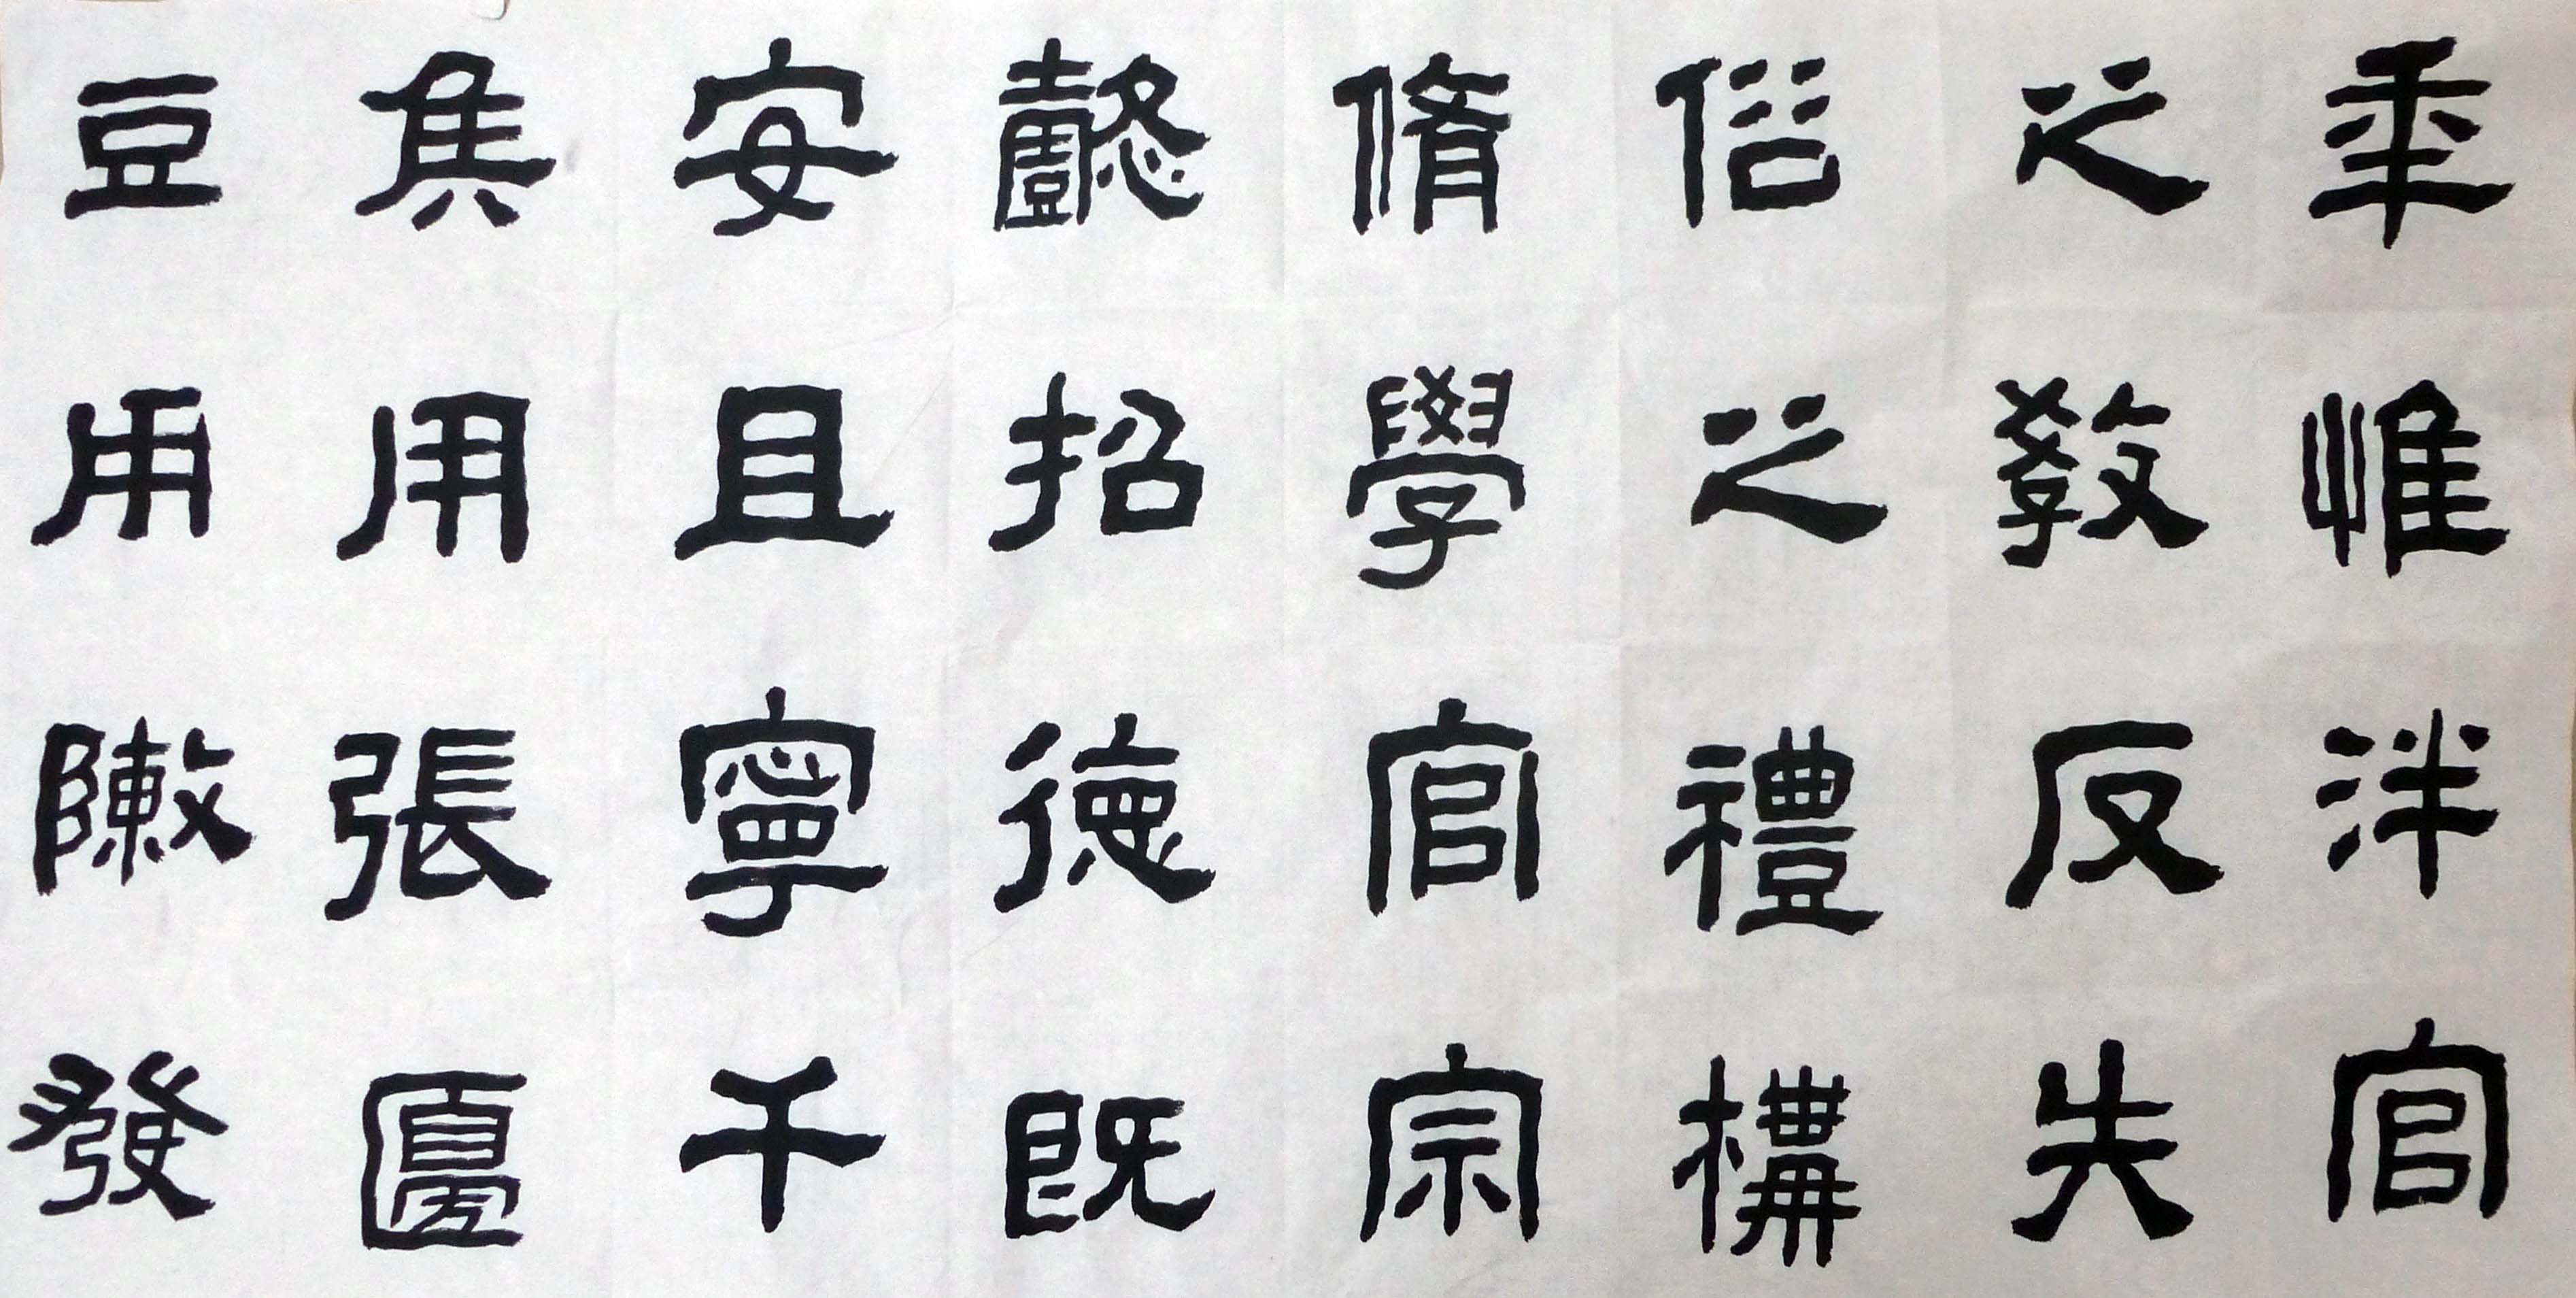 秊惟泮宮
之教反失
俗之禮構
脩學宮宗
懿招德既
安且寧干
侯用張籩
豆用陳發